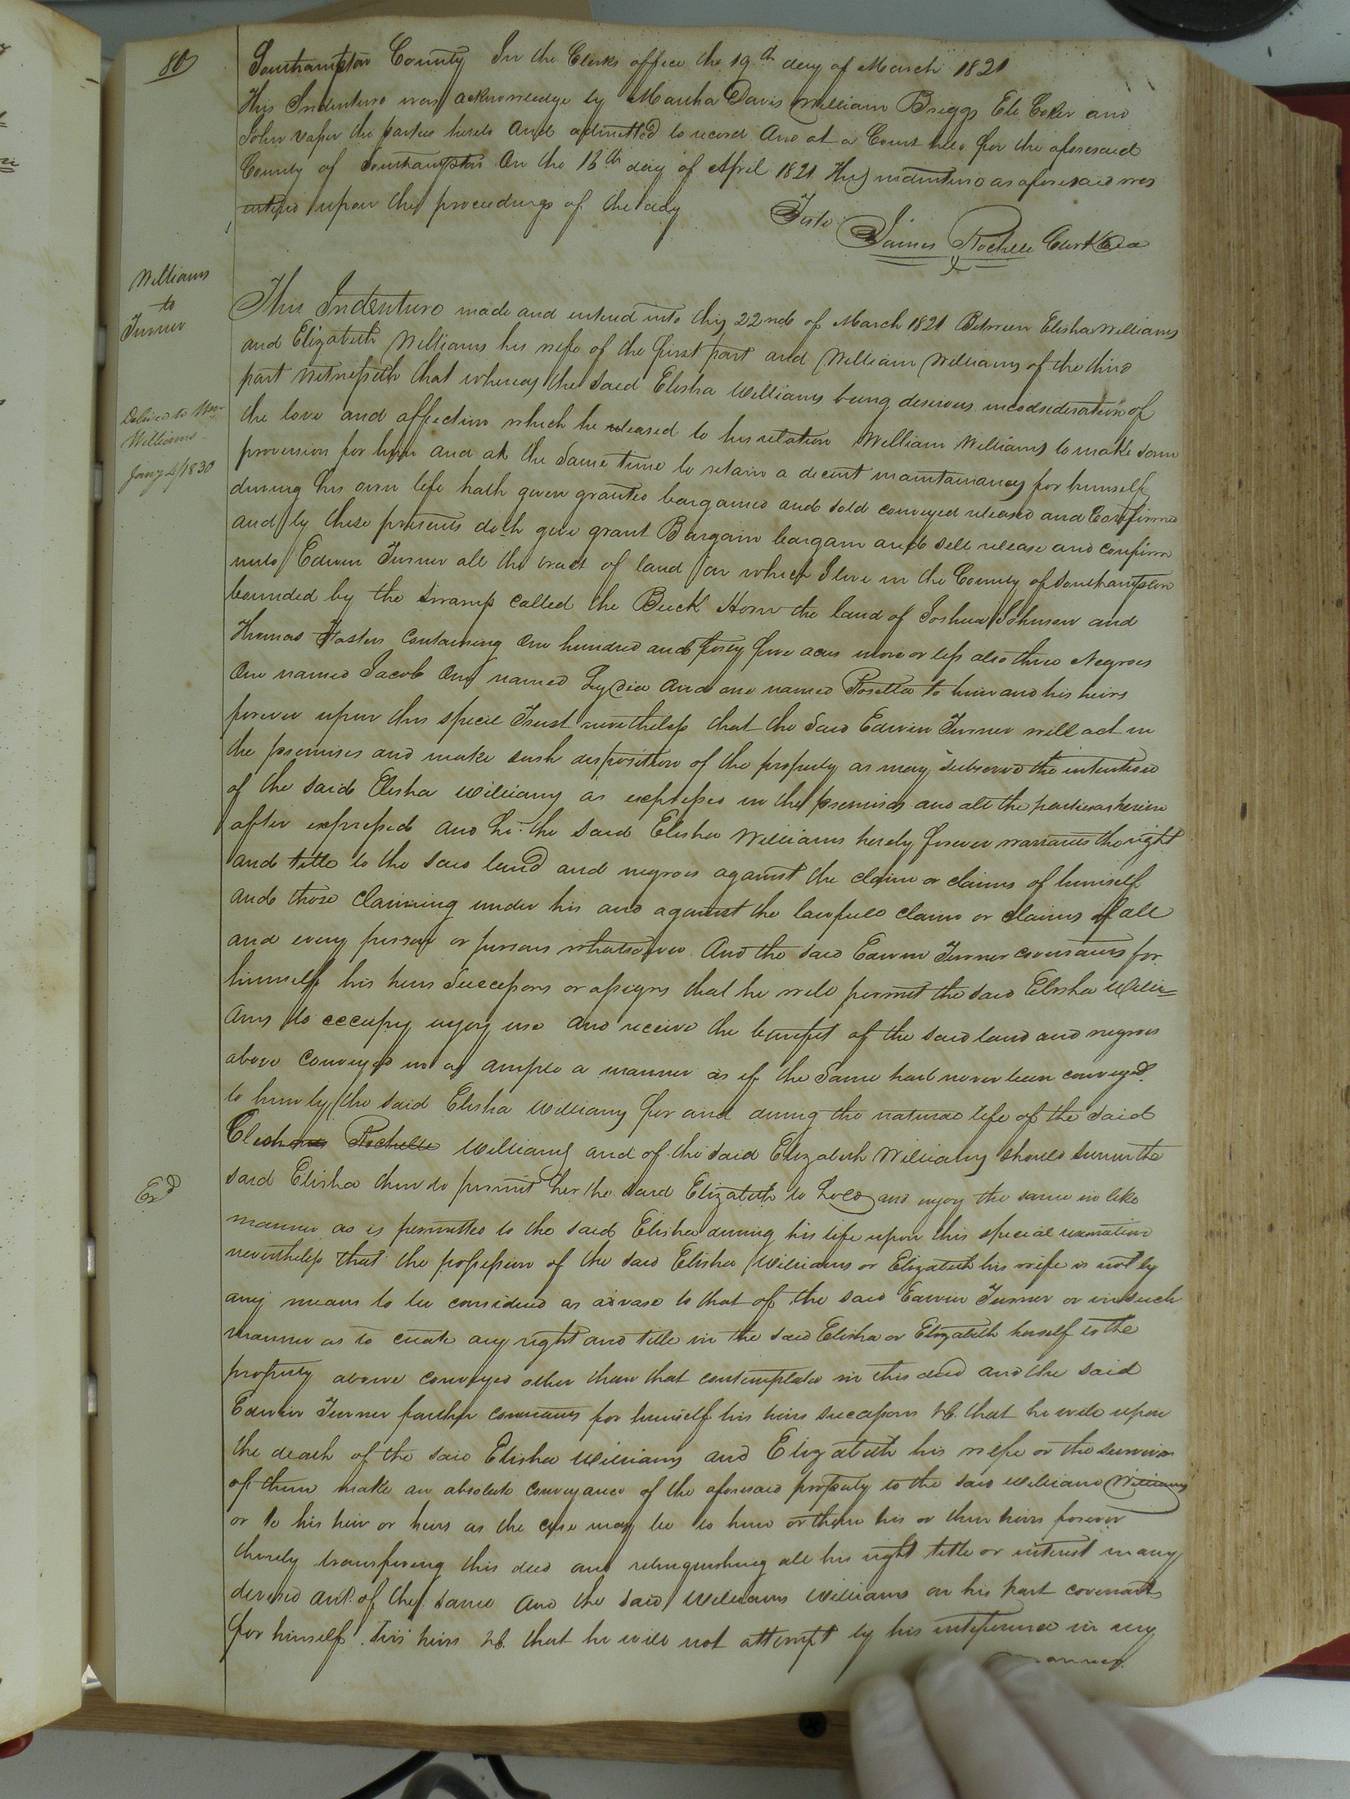 80
Southampton County In the Clerks office the 19th day of March 1821
This Indenture was acknowledge by Martha Davis William Briggs Eli Coker and
John Vaser the parties hereto and admitted to record And at a Court held for the aforesaid
County of Southampton On the 16th day of April 1821 This indenture as aforesaid was
entered upon the proceedings of the day Teste
James Rochelle Clerk
Williams
to
Turner
Delivd to Wm
Williams
Jany 4/1830
This Indenture made and entered into this 22nd of March 1821 Between Elisha Williams
and Elizabeth Williams his wife of the first part and William Williams of the third
part witnesseth that whereas the said Elisha Williams being desirous in consideration of
the love and affection which he to his relation William Williams to make some
provision for him and at the same time to retain a decent maintainancy for himself
during his own life hath given granted bargained and sold conveyed released and Confirmed
and by these presents doth give grant Bargain bargain and sell release and confirm
unto Edwin Turner all the tract of land on which I live in the County of Southampton
bounded by the swamp called the Buck Horn the land of Joshua Johnson and
Thomas containing One hundred and forty five acres more or less also three Negroes
One named Jacob One named Lydia and one named Rosetta to him and his heirs
forever upon this special Trust nevertheless that the said Edwin Turner will act in
the premises and make such disposition of the property as may subserve the intention
of the said Elisha Williams as expressed in the premises and all the parties herein
after expressed And he the said Elisha Williams hereby forever warrants the right
and title to the said land and negroes against the claim or claims of himself
and those claiming under his and against the lawfull claim or claims of all
and every person or persons whatsoever And the said Edwin Turner covenants for
himself his heirs Successors or assigns that he will permit the said Elisha Willi=
ams to occupy enjoy use and receive the benefit of the said land and negroes
above conveyed in as ample a manner as if the same had never been conveyed
to him by the said Elisha Williams for and during the natural life of the said
Elisha Rochelle Williams and of the said Elizabeth Williams should survive the
said Elisha then to permit her the said Elizabeth to hold and enjoy the same in like
Exd
manner as is permitted to the said Elisha during his life upon this special
nevertheless that the possession of the said Elisha Williams or Elizabeth his wife is not by
any means to be considered as advase to that of the said Edwin Turner or in such
manner as to create any right and title in the said Elisha or Elizabeth herself to the
property above conveyed other than that contemplated in this deed and the said
Edwin Turner farther covenants for himself his heirs successors &c that he will upon
the death of the said Elisha Williams and Elizabeth his wife or the survivor
of them make an absolute conveyance of the aforesaid property to the said William Williams
or to his heir or heirs as the case may be to him or them his or their heirs forever
thereby transfering this deed and relinquishing all his right title or interest in any
of the same And the said Williams Williams on his part covenants
for himself his heirs &c that he will not attempt by his interference in any
manner